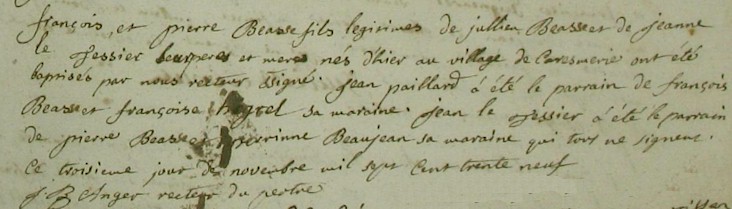 françois, et pierre Beasse fils legitimes de jullien Beasse et de jeanne
le Tessier leurs peres et meres nés dhier au village de ont été
baptisés par nous recteur Signé. jean paillard à été le parrain de françois
Beasse et françoise hegrel sa maraine. jean le Tessier à été le parrain
de pierre Beasse et perrinne Beaujean sa maraine qui tous ne signent.
Ce troisieme jour de novembre mil sept Cent trente neuf
Anger recteur du pertre